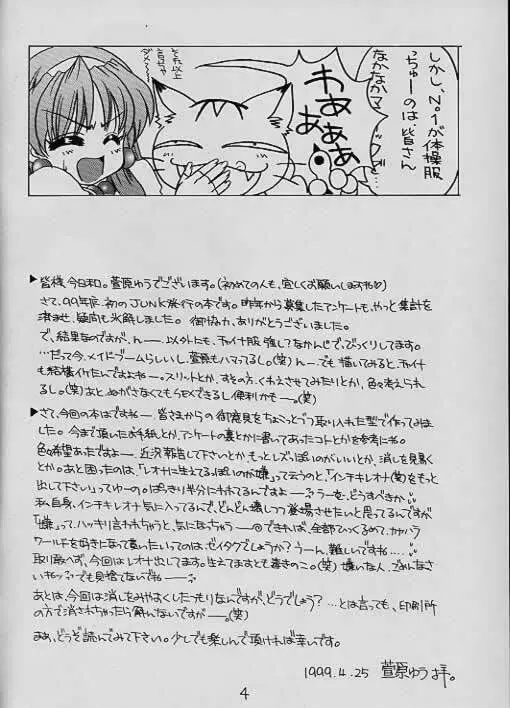 しかし、No.1が体操服
っちゅーのは、皆さん
なかなかマニアックで
わあぁぁぁ
それ以上
言っちゃ
ダメ〜
▶皆様、今日和。萱原ゆうでございます。(初めての人も、宜しくお願いしますね♡)
さて、99年度、初のJUNK発行の本です。昨年から募集したアンケートも、やっと集計を
済ませ、疑問も氷解しました。御協力、ありがとうございました。
で、結果なのですが、んー…以外にも、チャイナ服強し?なかんじで、びっくりしてます。
…だって今、メイドブームらしいし、萱原もハマってるし。(笑)んー…でも描いてみると、チャイナ
も結構イケたんですよねー。スリットとか、すその方、くわえさせてみたりとか、色々考えられ
るし。(笑)あと、ぬがさなくてもSEXできるし便利かもー。(笑)
▶さて、今回の本はですねー、皆さまからの御意見をちょこっとづつ取り入れた型で作ってみま
した。今まで頂いたお手紙とか、アンケートの裏とかに書いてあったコトとかを参考にね。
色々希望あったですよー。近況報告して下さいとか、もっとレズっぽいのがいいとか、消しを見易く
とか。あと困ったのは、「レオナに生えてるっぽいのが嫌」って云うのと、「インチキレオナ(笑)をもっと
出して下さい」ってゆーの。ぱっきり半分にわれてるんですよー うーむ、どうすべきか
私自身、インチキレオナ気に入ってるんで、どんどん嬉しつつ登場させたいと思ってるんですが
「嫌」って、ハッキリ言われちゃうと、気になっちゃうー できれば、全部ひっくるめて、カヤハラ
ワールドを好きになって貰いたいってのは、ゼイタクでしょうか?うーん、難しいですね….
取り敢へず、今回はレオナ出してます。生えてますとも毒きのこ。(笑)嫌いな人、ごめんなさ
いねッ でも見捨てないでねー
あとは、今回は消しをみやすくしたつもりなんですが、どうでしょう?…とは言っても、印刷所
の方で消されちゃったら解んないですがー。(笑)
まあ、どうぞ読んでみて下さい。少しでも楽しんで頂ければ幸いです。
1999.4.25 萱原ゆう 拝。
4